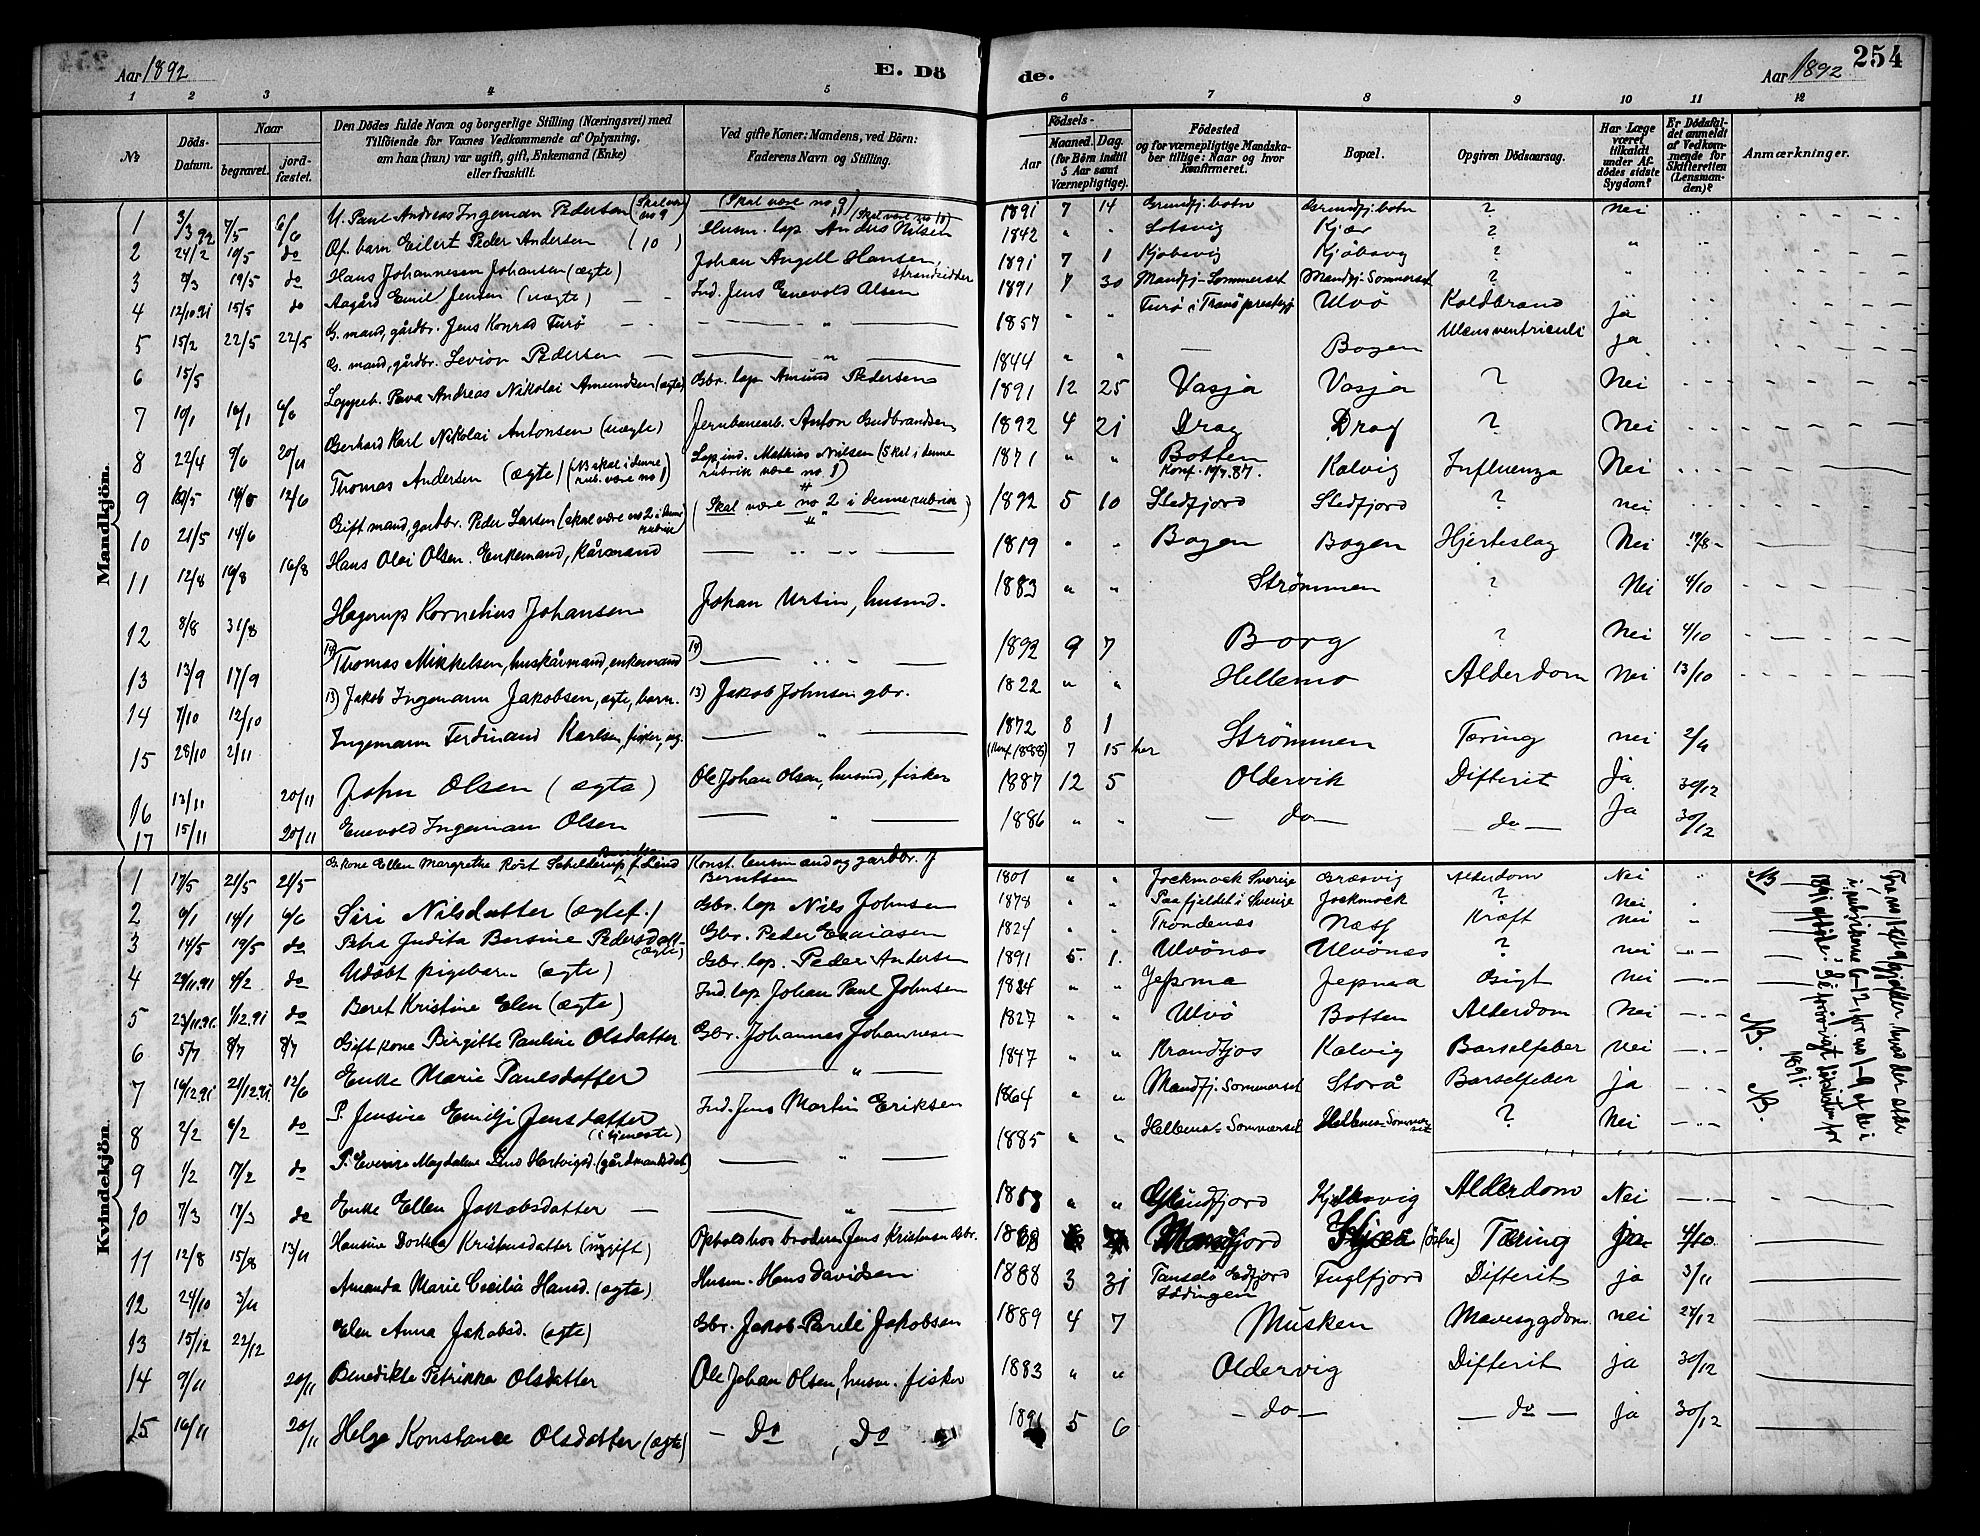 Aar 1892
E. Dö
de.
Aar 1892
254
1 2 3 4 5
6 7 8 9 10 11 12
№
Döds-Datum.
Naar
begravet.
jord-fæstet.
Den Dödes fulde Navn og borgerlige Stilling (Næringsvei) med
Tilföiende for Voxnes Vedkommende af Oplysning,
om han (hun) var ugift, gift, Enkemand (Enke)
eller fraskilt.
Ved gifte Koner: Mandens, ved Börn:
Faderens Navn og Stilling.
Födsels-
Aar
Maaned. Dag.
(for Börn indtil
5 Aar samt
Værnepligtige).
Födested
og for værnepligtige Mandska-
ber tillige: Naar og hvor
konfirmeret.
Bopæl.
Opgiven Dödsaarsag.
Har Læge
været
tilkaldt
under Af-
dödes sidste
Sygdom?
Er Dödsfal-
det anmeldt
af Vedkom-
mende for
Skifteretten
(Lensman-
den)?
Anmærkninger.
Mandkjön.
1 3/3 92 7/5 6/6 U. Paul Andreas Ingeman Pedersen (Skal være no 9) (Skal være no 9) 1891 7 14 Grundfj. botn Grundfj. botn ? Nei
2 24/2 19/5 do Of. barn Eilert Peder Andersen (10) Husm. lap Anders Nilsen (Skal være no 10) 1842 " " Lotsvig Kjær ? "
3 7/3 19/5 do Hans Johannesen Johansen (ægte) Johan Angell Hansen, strandsidder 1891 7 1 Kjöbsvig Kjöbsvg ? "
4 12/10.91 15/5 do Aagård Emil Jensen (uægte) Ind. Jens Enevold Olsen 1891 7 30 Mandfj-Sommerset Mandfj-Sommerset ? "
5 15/2 22/5 22/5 G. mand, gårdbr. Jens Konrad Furö " 1857 " " Furö i Tranö prestegj. Ulvö Koldbrand ja
6 15/5 G. mand, gårdbr. Levion Pedersen " 1844 " " Bogen Ulcus ventriculi ja
7 10/1 16/1 6/6 Loppeb. Pava Andreas Nikolai Amundsen (ægte) Gbr. lap Amund Pedersen 1891 12 25 Vasja Vasja ? Nei
8 22/4 9/6 20/11 Gerhard Karl Nikolai Antonsen (uægte) Jernbanearb. Anton Gudbrandsen 1892 4 21 Drag Drag ? Nei
9 10/5 14/6 12/6 Thomas Andersen (ægte) (NB skal i denne rub. være no 1) Lap ind. Mathias Nilsen (Skal i denne rubrik være no 1) 1871 " " Botten Konf. 10/7.87. Kalvig Influenza Nei
10 21/5 14/6 Gift mand, garbr. Peder Larsen (skal være no 2 i denne rubrik) (Skal være no 2 i denne rubrik) 1892 5 10 Stedfjord Stedfjord ? nei
11 12/8 16/8 16/8 Hans Olai Olsen. Enkemand, kårmand 1819 " " Bogen Bogen Hjerteslag Nei 19/8
12 8/8 31/8 Hagerup Kornelius Johansen Johan Ursin, husmd. 1883 " " Strömmen ? Nei 4/10
13 13/9 17/9 14) Thomas Mikkelsen, huskårmand, enkemand 14) 1892 9 7 Borg ? Nei 4/10
14 7/10 12/10 13) Jakob Ingemann Jakobsen, ægte, barn. 13) Jakob Johnsen gbr. 1822 " " Hellemo Alderdom Nei 13/10
15 28/10 2/11 Ingemann Ferdinand Karlsen, fisker, ug. " 1872 8 1 (Konf 1888) 7 15 her Strömmen Tæring nei 2/11
16 12/11 20/11 John Olsen (ægte) Ole Johan Olsen, husmd, fisker 1887 12 5 Oldervik Difterit Ja 30/12
17 15/11 20/11 Enevold Ingeman Olsen " 1886 " " do do Ja 30/12
Kvindekjön.
1 17/5 21/5 21/5 G. kone Ellen Margrethe Röst Schelderup f. Lund Konst. lensmand og garbr. J Berntsen 1801 " " Jockmock Sverige Græsvig Alderdom Nei
2 9/1 14/1 6/6 Siri Nilsdatter (ægtef.) Gbr. lap Nils Johnsen 1878 " " Paa fjeldet i Sverige Jockmock ? Nei
3 14/5 19/5 do Petra Judita Bersine Pedersdatt- (ægte) Gbr. Peder Esaiasen 1824 " " Trondenæs Næss Kræft nei
4 29/11.91 4/2 do Udöbt pigebarn (ægte) Gbr. lap. Peder Andersen 1891 5. 1. Ulvönæs Ulvönæs ? nei
5 23/11.91. 1/12.91 do Beret Kristine Elen (ægte) Ind. lap Johan Paul Johnsen 1824 " " Jepma Jepmaa Gigt nei
6 5/7 8/7 8/7 Gift kone Birgitte Pauline Olsdatter Gbr. Johannes Johannesen 1827 " " Ulvö Botten Alderdom Nei
7 16/12.91 21/12.91. 12/6 Enke Marie Paulsdatter " 1847 " " Krandfjos Kalvig Barselfeber nei
8 2/2 6/2 do P. Jensine Emilji Jensdatter (i tjeneste) Ind. Jens Martin Eriksen 1864 " " Mandfj. Sommerset Storå Barselfeber ja
9 1/2 7/2 do P. Everine Magdalene Lind Hartvigsd. (gårdmandsdat) " 1885 " " Hellemo-Sommerset Hellemo-Sommerset ? Nei
10 7/3 17/3 do Enke Ellen Jakobsdatter " " " Grundfjord Kjöbsvig Alderdom Nei
11 12/8 15/8 13/11 Hansine Dorthea Kristensdatter (ugift) Ophold hos broderen Jens Kristensen Gbr. Mandfjord (östre) Tæring ja 4/10.
12 24/10 3/11 Amanda Marie Cecilia Hansd. (ægte) Husm. Hans Davidsen 1888 3 31 Tansåö Edfjord Lödingen Fuglfjord Difterit ja 3/11
13 15/12 22/12 Elen Anna Jakobsd. (ægte) Gbr. Jakob Pareli Jakobsen 1889 4 7 Musken Mavesygdom nei 27/12
14 9/11 20/11 Benedikte Petrikka Olsdatter Ole Johan Olsen, husm. fisker 1883 " " Oldervig Difterit ja 30/12
15 16/11 20/11 Helga Konstance Olsdatter (ægte) Do , Do 1891 5 6 do do ja 30/12
NB
NB.
NB.
Fra no 1-9 gjælder hvad der står
i rubrikerne 6-12, for no 1-9 af de i
1891 afdöde. Se forövrigt dödslisten for
1891.